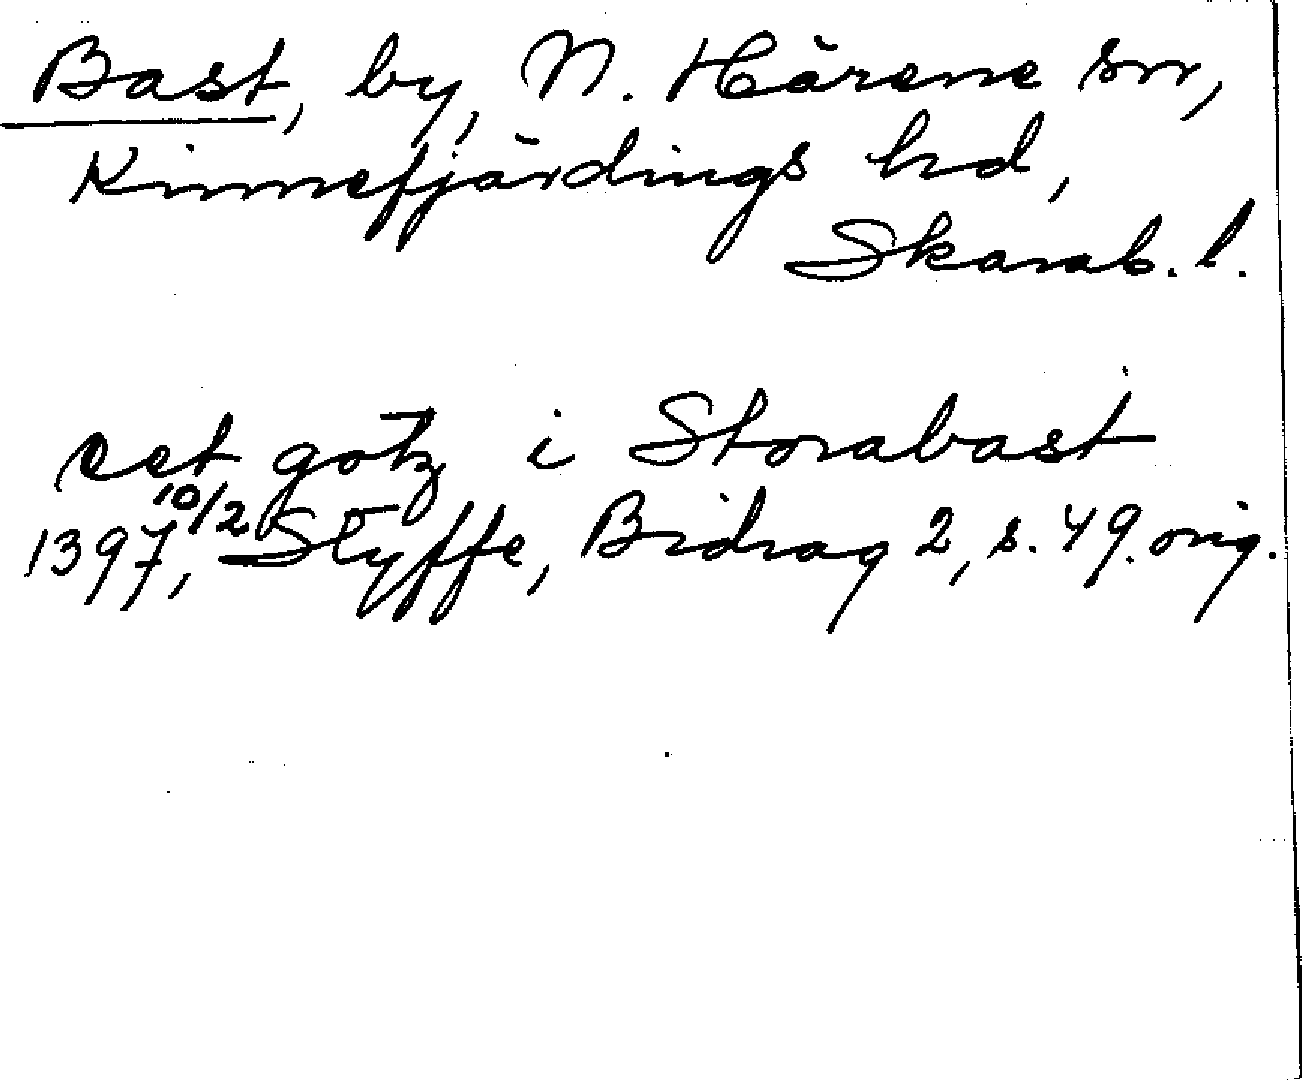 Bast, by, N. Härene sn,
Kinnefjärdings hd,
Skarab. l.
eet götz i Storabast
1397 10/2, Styffe, Bidrag 2, s. 49. orig.